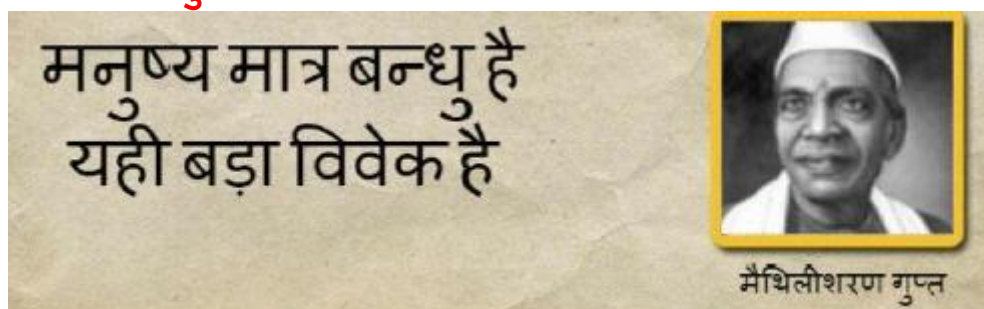 मनुष्य मात्र बन्धु है
यही बड़ा विवेक है
मैथिलीशरण गुप्त